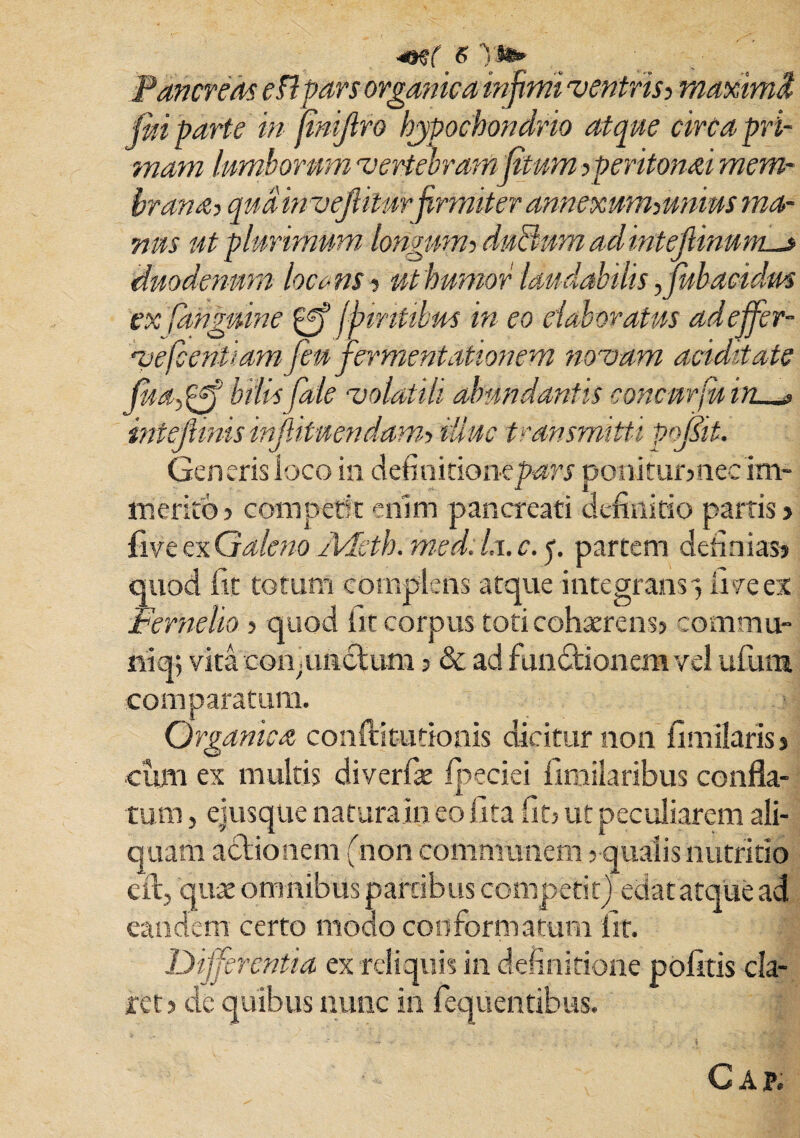 ( 6 )
Pancreas eſt pars organica infimi ventris, maximâ
ſui parte in ſiniſtro hypochondrio atque circa pri-
mam lumborum vertebram ſitum, peritonæi mem-
branæ, quâ inveſtitur firmiter annexum, unius ma-
nus ut plurimum longum, ductum ad inteſtinum
duodenum locans, ut humor laudabilis, ſubacidus
ex ſanguine & ſpiritibus in eo elaboratus ad effer-
veſcentiam ſeu fermentationem novam aciditate
ſua, & bilis ſale volatili abundantis concurſu in
inteſtinis inſtituendam, illuc transmitti poſſit.
Generis loco in definitione pars ponitur, nec im-
merito, competit enim pancreati definitio partis,
ſive ex Galeno Meth. med. l.1. c. 5. partem definias,
quod ſit totum complens atque integrans; ſive ex
Fernelio, quod ſit corpus toti cohærens, commu-
niq; vitâ conjunctum, & ad functionem vel uſum
comparatum.
Organicæ conſtitutionis dicitur non ſimilaris,
cùm ex multis diverſæ ſpeciei ſimilaribus confla-
tum, ejusque natura in eo ſita ſit, ut peculiarem ali-
quam actionem (non communem, qualis nutritio
eſt, quæ omnibus partibus competit) edat atque ad
eandem certo modo conformatum ſit.
Differentia ex reliquis in definitione poſitis cla-
ret, de quibus nunc in ſequentibus.
CAP.